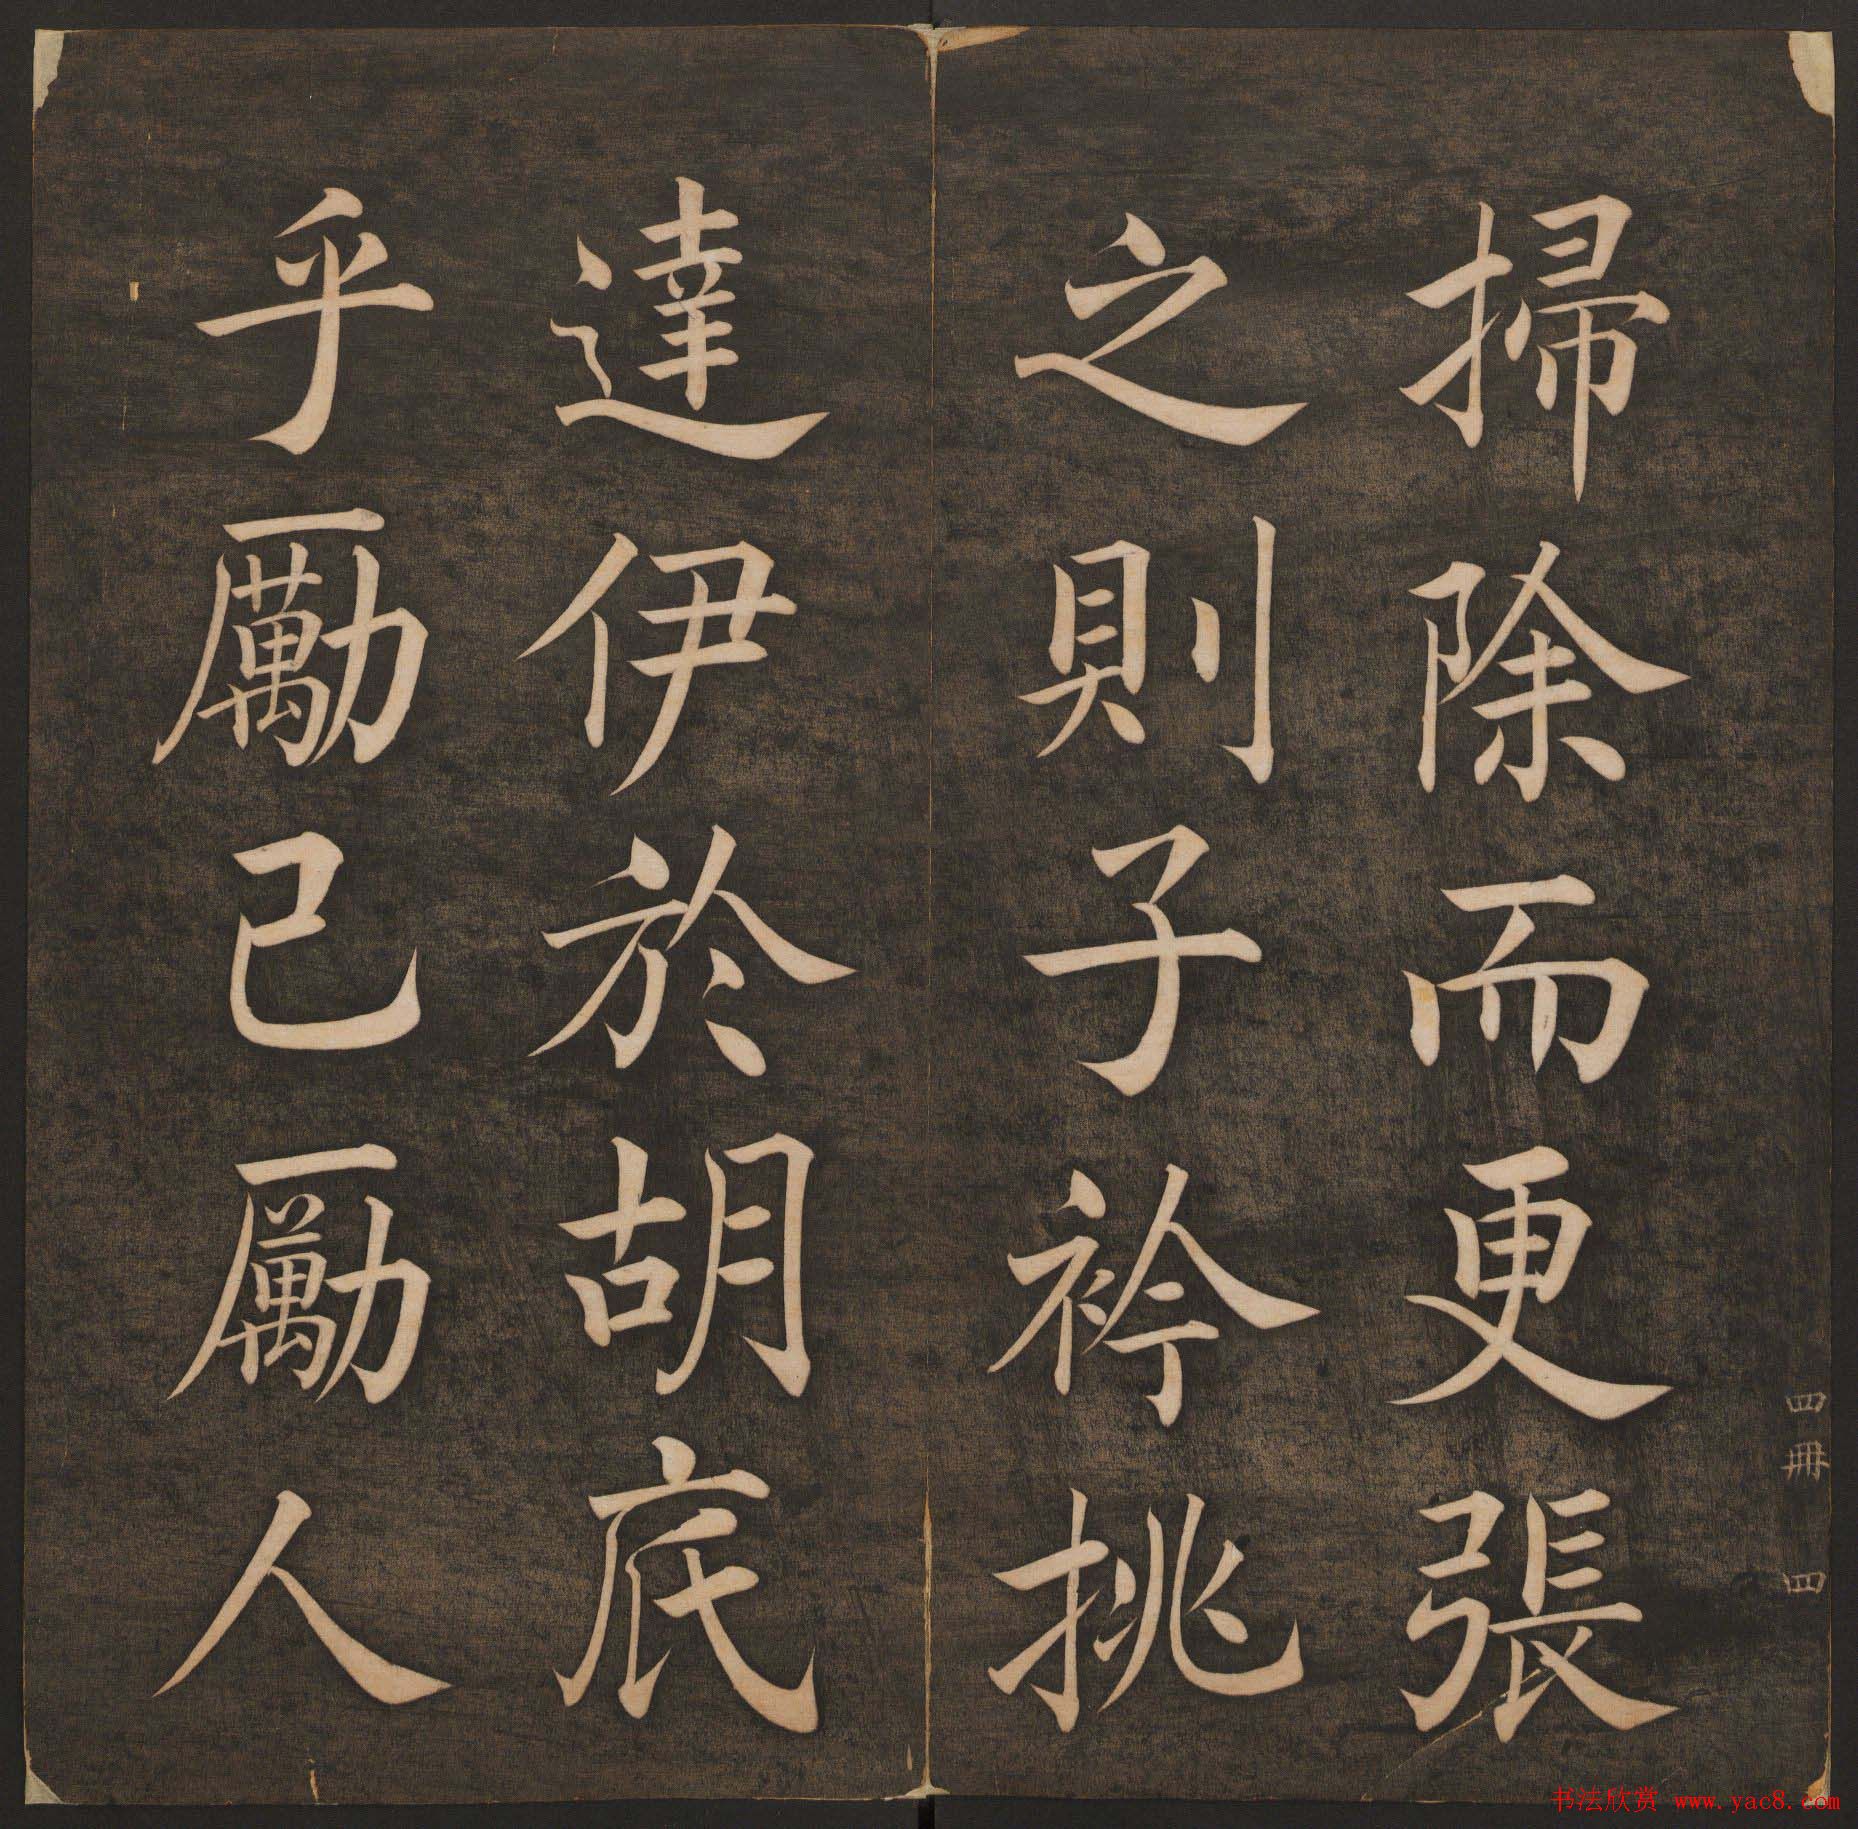 掃除而更張
之則子衿挑
達伊於胡底
乎勵已勵人
四冊 四
书法欣赏 www.yac8.com